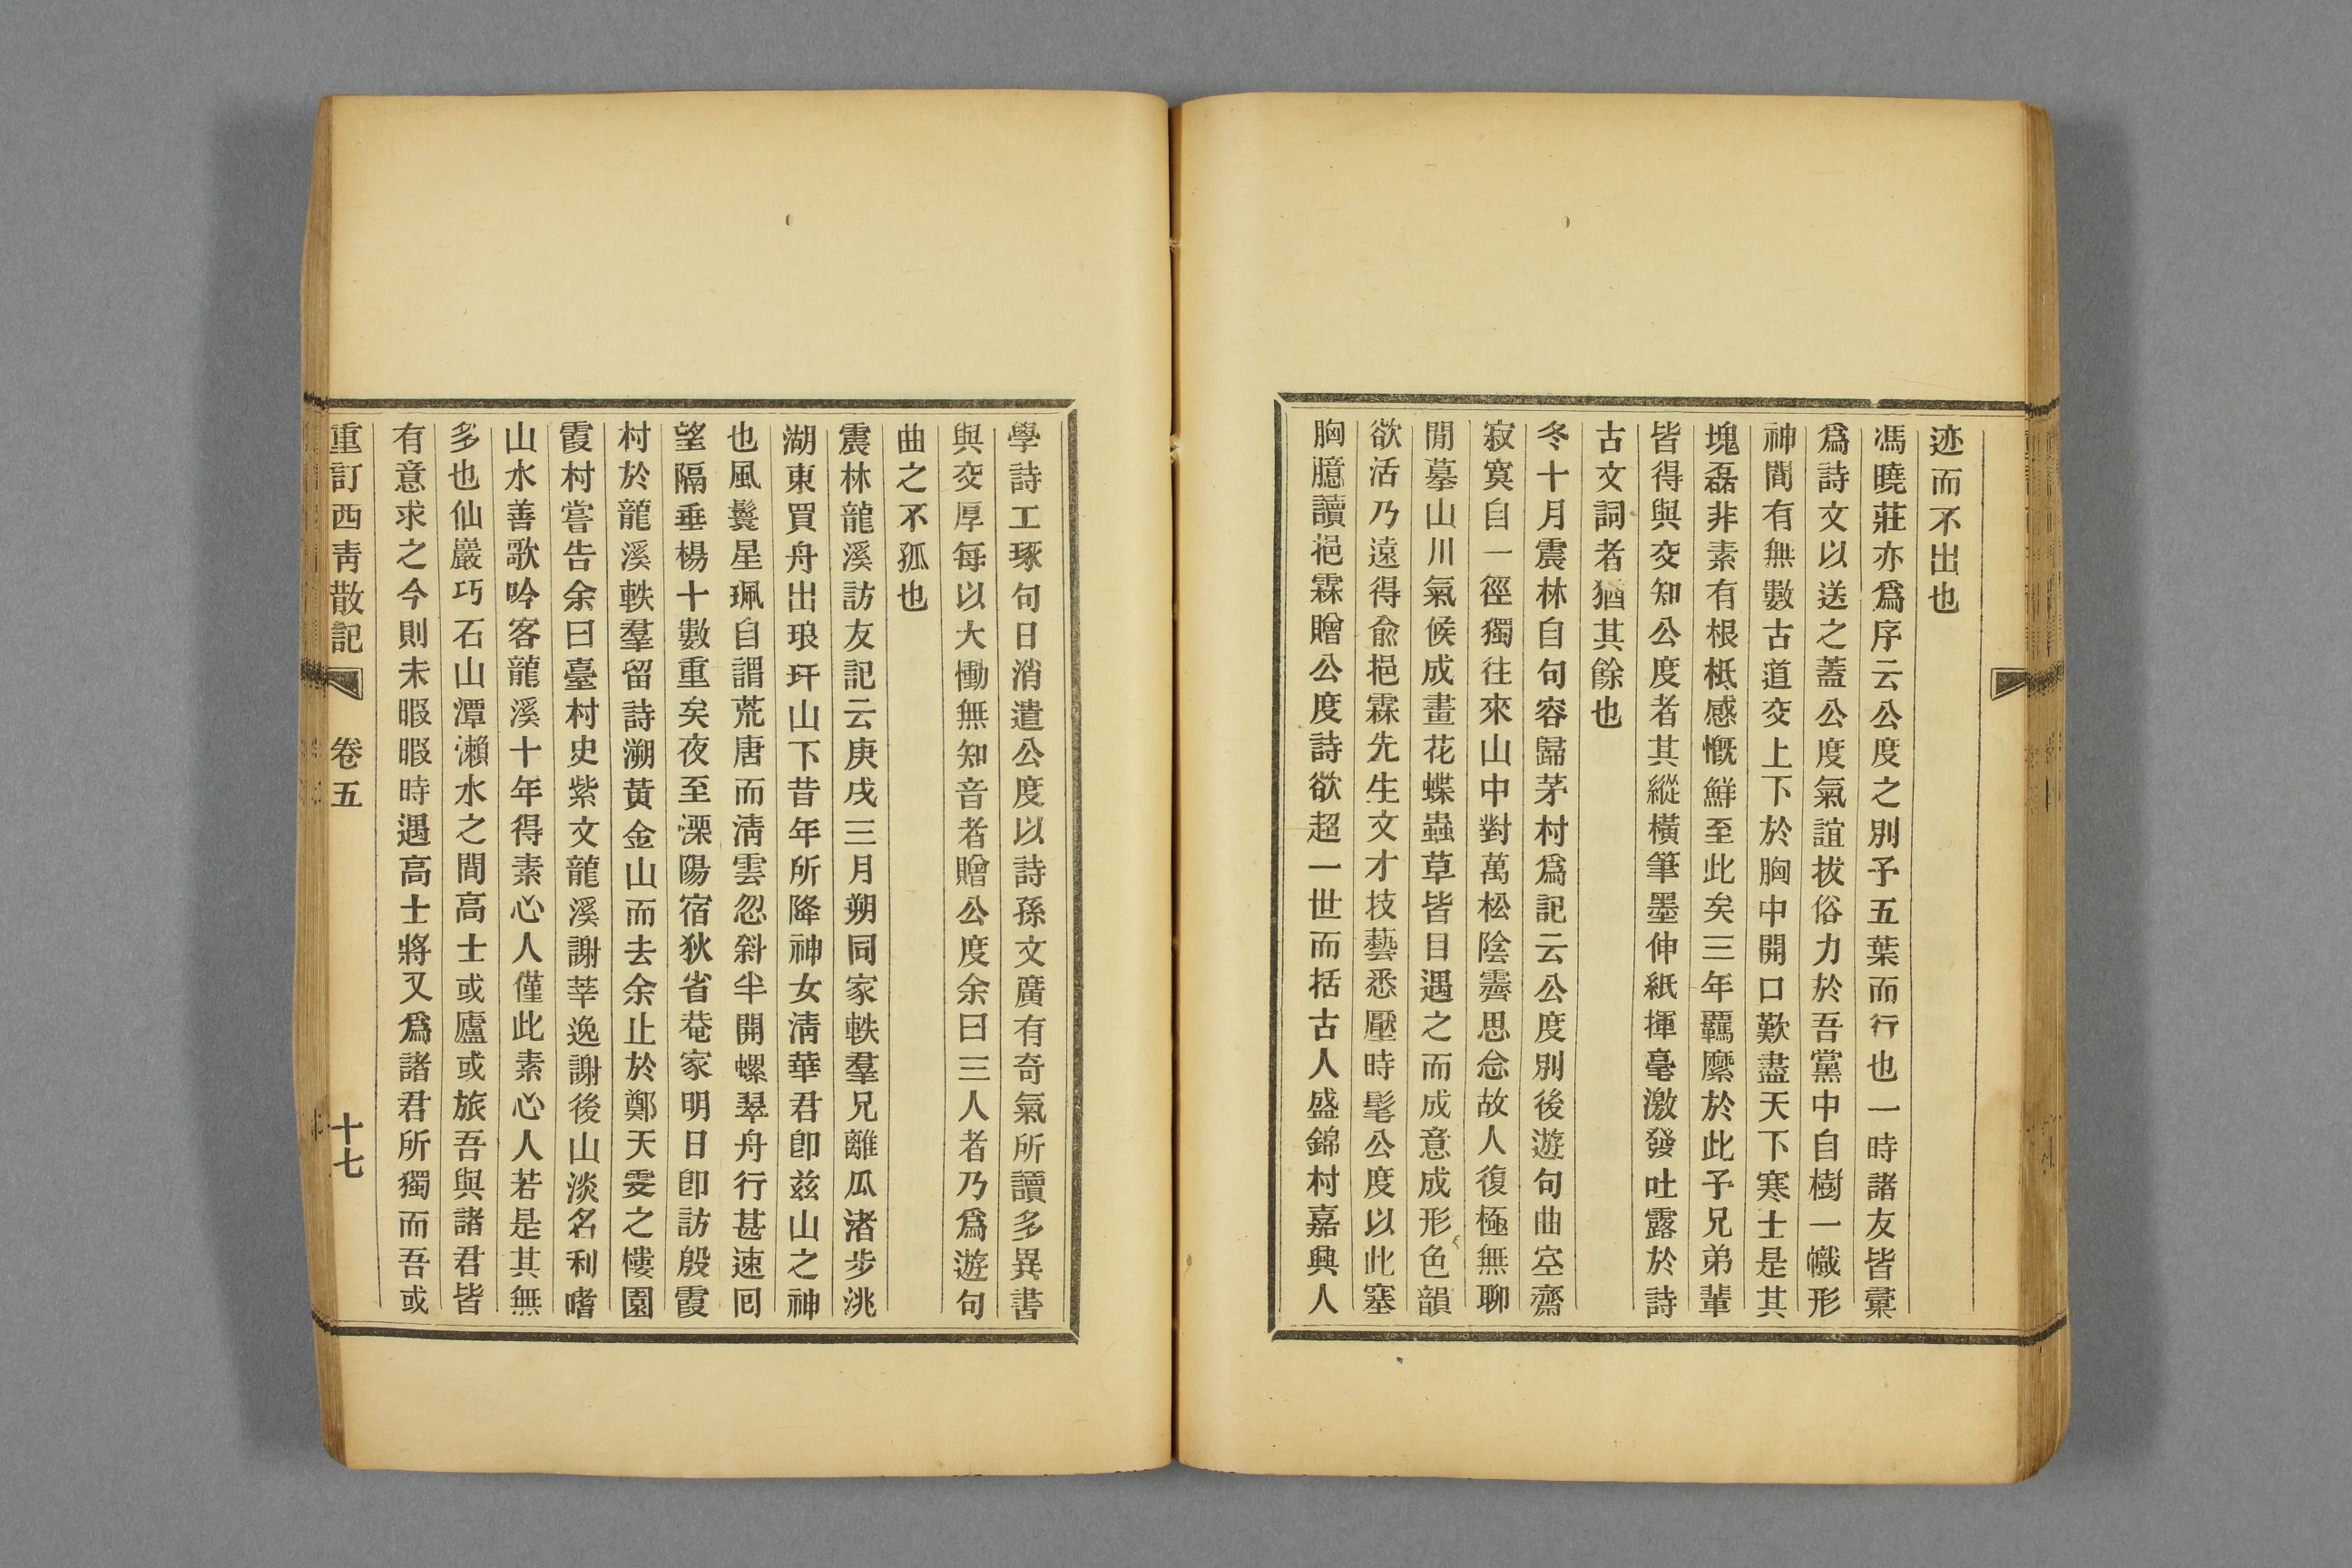 迹而不出也
馮曉莊亦爲序云公度之別予五葉而行也一時諸友皆彙
爲詩文以送之蓋公度氣誼拔俗力於吾黨中自樹一幟形
神間有無數古道交上下於胸中開口歎盡天下寒士是其
塊磊非素有根柢感慨鮮至此矣三年羈縻於此予兄弟輩
皆得與交知公度者其縱橫筆墨伸紙揮毫激發吐露於詩
古文詞者猶其餘也
冬十月震林自句容歸茅村爲記云公度別後遊句曲空齋
寂寞自一徑獨往來山中對萬松陰霽思念故人復極無聊
閒摹山川氣候成畫花蝶蟲草皆目遇之而成意成形色韻
欲活乃遠得俞挹霖先生文才技藝悉壓時髦公度以此塞
胸臆讀挹霖贈公度詩欲超一世而括古人盛錦村嘉興人
學詩工琢句日消遣公度以詩孫文廣有奇氣所讀多異書
與交厚每以大慟無知音者贈公度余曰三人者乃爲遊句
曲之不孤也
震林龍溪訪友記云庚戌三月朔同家軼羣兄離瓜渚步洮
湖東買舟出琅玕山下昔年所降神女清華君卽茲山之神
也風鬟星珮自謂荒唐而淸雲忽斜半開螺翠舟行甚速囘
望隔垂楊十數重矣夜至溧陽宿狄省菴家明日卽訪殷霞
村於龍溪軼羣留詩溯黃金山而去余止於鄭天雯之樓園
霞村嘗告余曰臺村史紫文龍溪謝莘逸謝後山淡名利嗜
山水善歌吟客龍溪十年得素心人僅此素心人若是其無
多也仙巖巧石山潭瀨水之間高士或廬或旅吾與諸君皆
有意求之今則未暇暇時遇高士將又爲諸君所獨而吾或
重訂西靑散記 卷五 十七